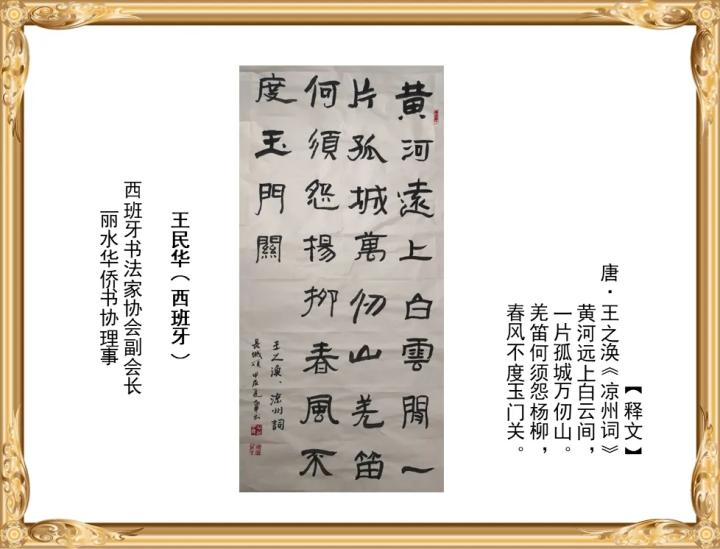 【释文】
唐·王之涣《凉州词》
黄河远上白云间，
一片孤城万仞山。
羌笛何须怨杨柳，
春风不度玉门关。
黄河遠上白雲閒一
片孤城萬仞山羌笛
何須怨楊柳春風不
度玉門關
王之渙、涼州詞
長城
王民华（西班牙）
西班牙书法家协会副会长
丽水华侨书协理事